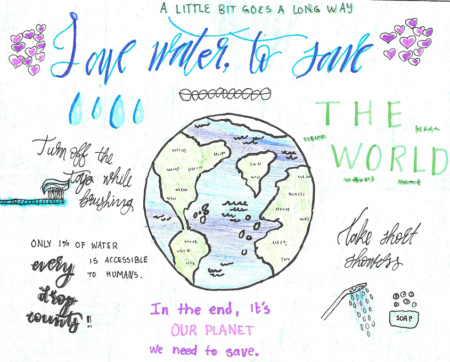 A LITTLE BIT GOES A LONG WAY
Save water, to save
THE
WORLD
Turn off the
Taps while
brushing
ONLY 1% OF WATER
IS ACCESSIBLE
TO HUMANS.
every
drop
counts!!
Take short
showers
SOAP
In the end, it's
OUR PLANET
we need to save.